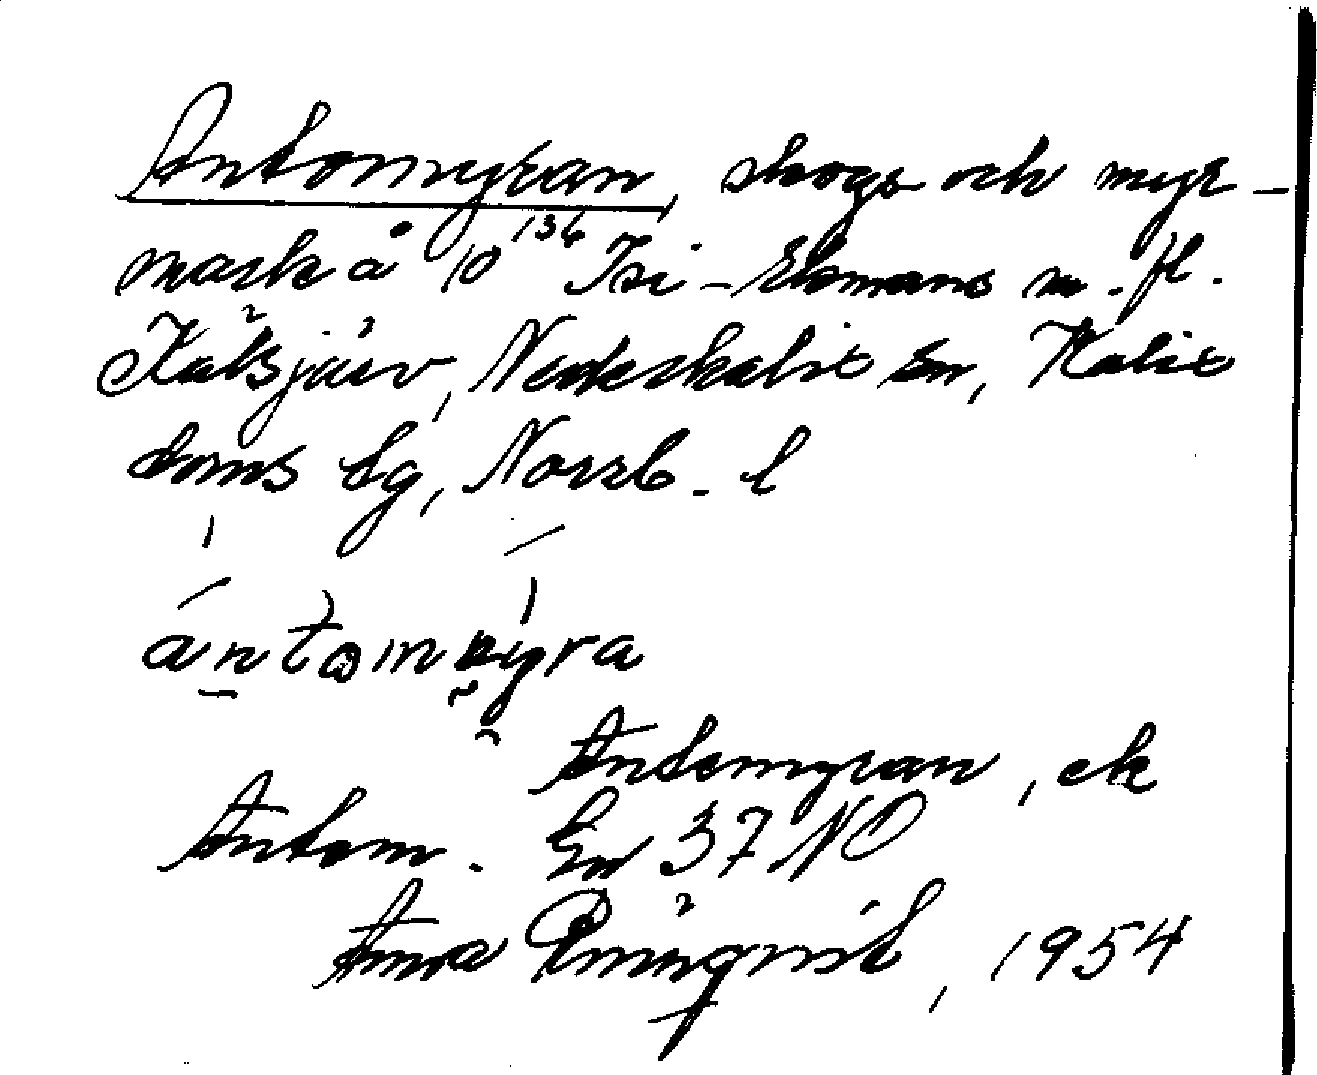 Antomyran, skogs och myr-
mark å 10¹³⁶ Isi-Ekmans m. fl.
Kätsjärv, Nederkalix sn, Kalix
doms lg, Norrb. l
antommyra
Antomyran, ek
Antom. Gv 37 NO
Anna 1954